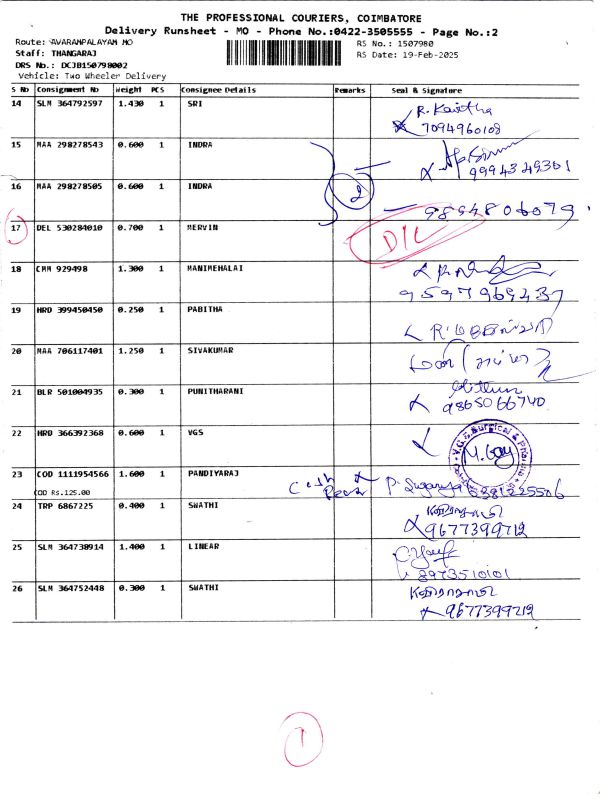 THE PROFESSIONAL COURIERS, COIMBATORE
Delivery Runsheet - MO - Phone No.:0422-3505555 - Page No.:2
Route: AVARAMPALAYAM MO
RS No.: 1507980
Staff: THANGARAJ
RS Date: 19-Feb-2025
DRS No.: DCJB150798002
Vehicle: Two Wheeler Delivery
S No Consignment No Weight PCS Consignee Details Remarks Seal & Signature
14 SLM 364792597 1.430 1 SRI R. Kavitha
7094960108
15 MAA 298278543 0.600 1 INDRA
9994349301
16 MAA 298278505 0.600 1 INDRA 2
9894806079
17 DEL 530284010 0.700 1 MERVIN D/L
18 CMM 929498 1.300 1 MANIMEHALAI
9597969437
19 HRD 399450450 0.250 1 PABITHA
20 MAA 706117401 1.250 1 SIVAKUMAR
21 BLR 501004935 0.300 1 PUNITHARANI
9865066740
22 HRD 366392368 0.600 1 VGS V.G.S. Surgical &
23 COD 1111954566 1.600 1 PANDIYARAJ Cash P. Suganya
COD Rs.125.00
24 TRP 6867225 0.400 1 SWATHI
9677399712
25 SLM 364738914 1.400 1 LINEAR
8973510101
26 SLM 364752448 0.300 1 SWATHI
9677399712
1